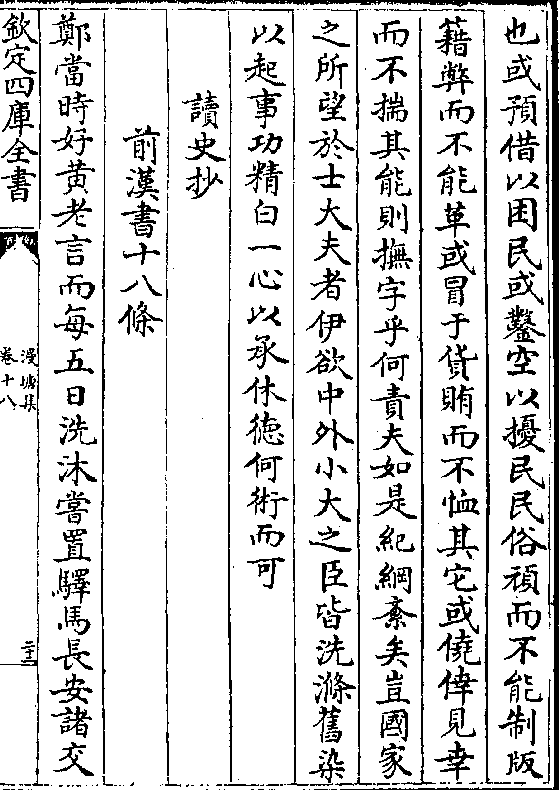 也或預借以困民或鑿空以擾民民俗頑而不能制版
藉弊而不能革或冒于貨賄而不恤其它或僥倖見幸
而不揣其能則撫字乎何責夫如是紀綱紊矣豈國家
之所望於士大夫者伊欲中外小大之臣皆洗滌舊染
以起事功精白一心以承休德何術而可
讀史抄
前漢書十八條
鄭當時好黄老言而每五日洗沐嘗置驛馬長安諸交
欽定四庫全書
漫塘集
卷十八